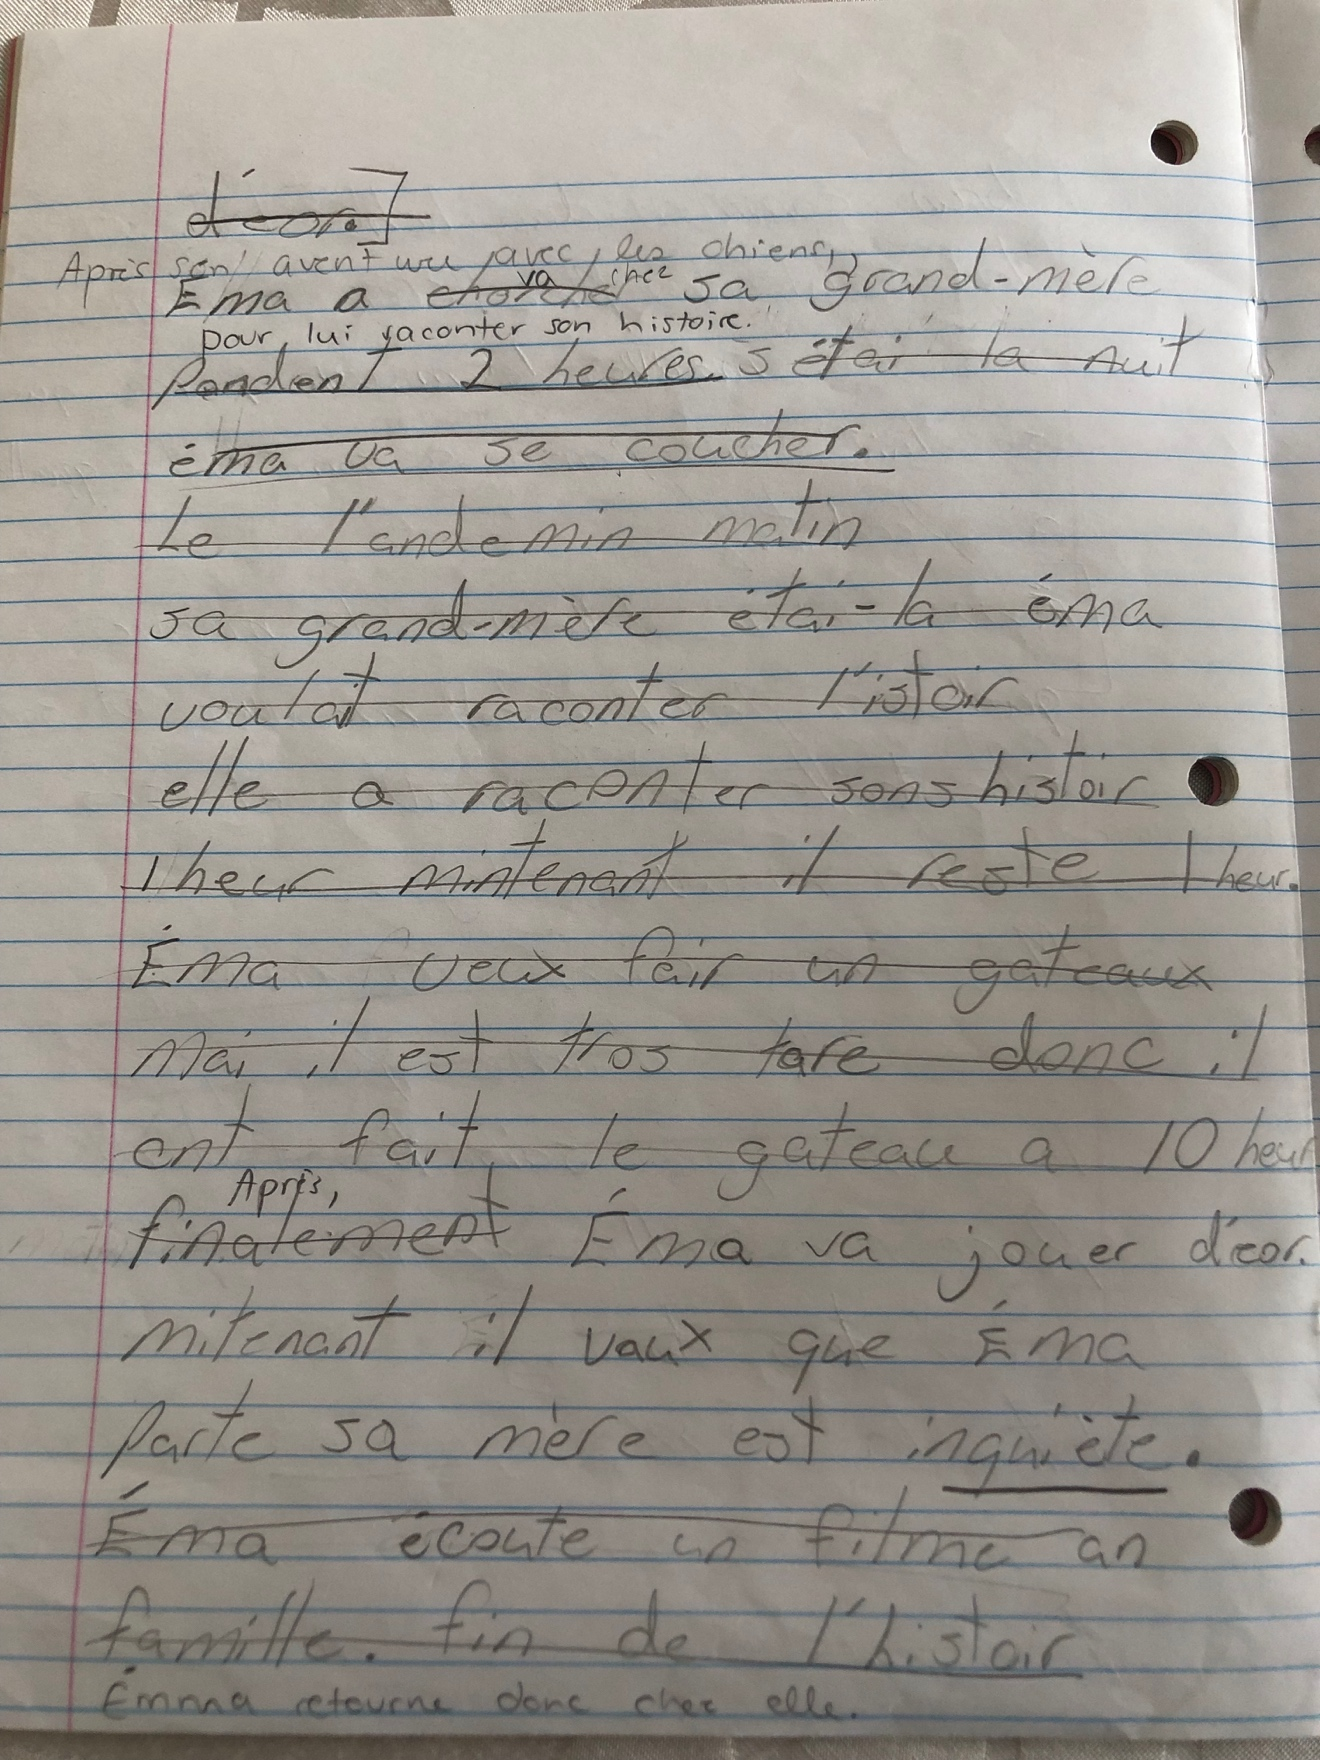 d'éor.]
Après son aventure avec les chiens,
va chez
Éma a cherché sa grand-mère
pour lui raconter son histoire.
Pandent 2 heures. s'étai la nuit
éma va se coucher.
Le l'andemin matin
sa grand-mère étai-la éma
voulait raconter l'istoir
elle a raconter sons histoir
1 heur mintenant il reste 1 heur.
Éma veux fair un gateaux
mai il est tros tare donc il
ont fait le gateau a 10 heur
Après,
finalement Éma va jouer d'éor.
mitenant il vaux que Éma
parte sa mère est inquiète.
Éma écoute un filme an
famille. fin de l'histoir
Émma retourne donc chez elle.